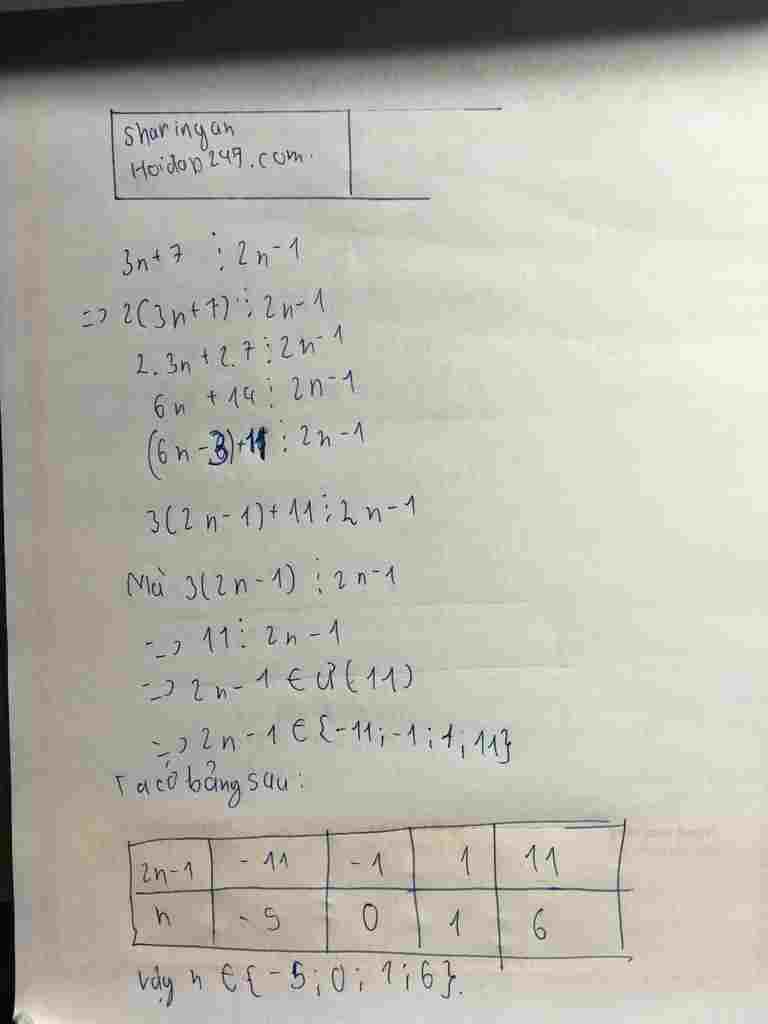 Sharingan
Hoidap247.com.
3n+7 ⋮ 2n-1
=> 2(3n+7) ⋮ 2n-1
2.3n+2.7 ⋮ 2n-1
6n +14 ⋮ 2n-1
(6n-3)+11 ⋮ 2n-1
3(2n-1)+11 ⋮ 2n-1
Mà 3(2n-1) ⋮ 2n-1
=> 11 ⋮ 2n-1
=> 2n-1 ∈ Ư(11)
=> 2n-1 ∈ {-11;-1;1;11}
Ta có bảng sau:
2n-1 -11 -1 1 11
n -5 0 1 6
Vậy n ∈ {-5;0;1;6}.